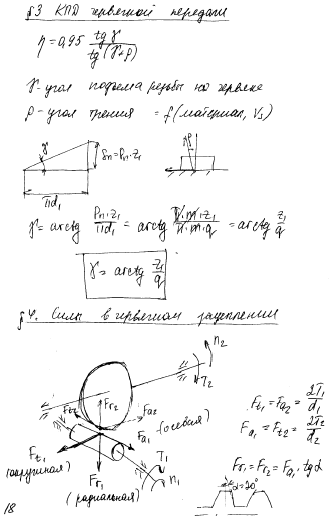 §3 КПД червячной передачи
η = 0,95 tg γ / tg (γ+ρ)
γ - угол подъема резьбы на червяке
ρ - угол трения = f (материал, Vs)
γ
Sn = Pn·z1
ρ
πd1
γ = arctg Pn·z1 / πd1 = arctg π·m·z1 / π·m·q = arctg z1 / q
γ = arctg z1 / q
§4. Силы в червячном зацеплении
n2
T2
Ft2 Fr2 Fa2
(осевая)
Fa1
Ft1
(окружная)
T1
n1
Fr1
(радиальная)
Ft1 = Fa2 = 2T1 / d1
Fa1 = Ft2 = 2T2 / d2
Fr1 = Fr2 = Fa1·tg α
α = 20°
18